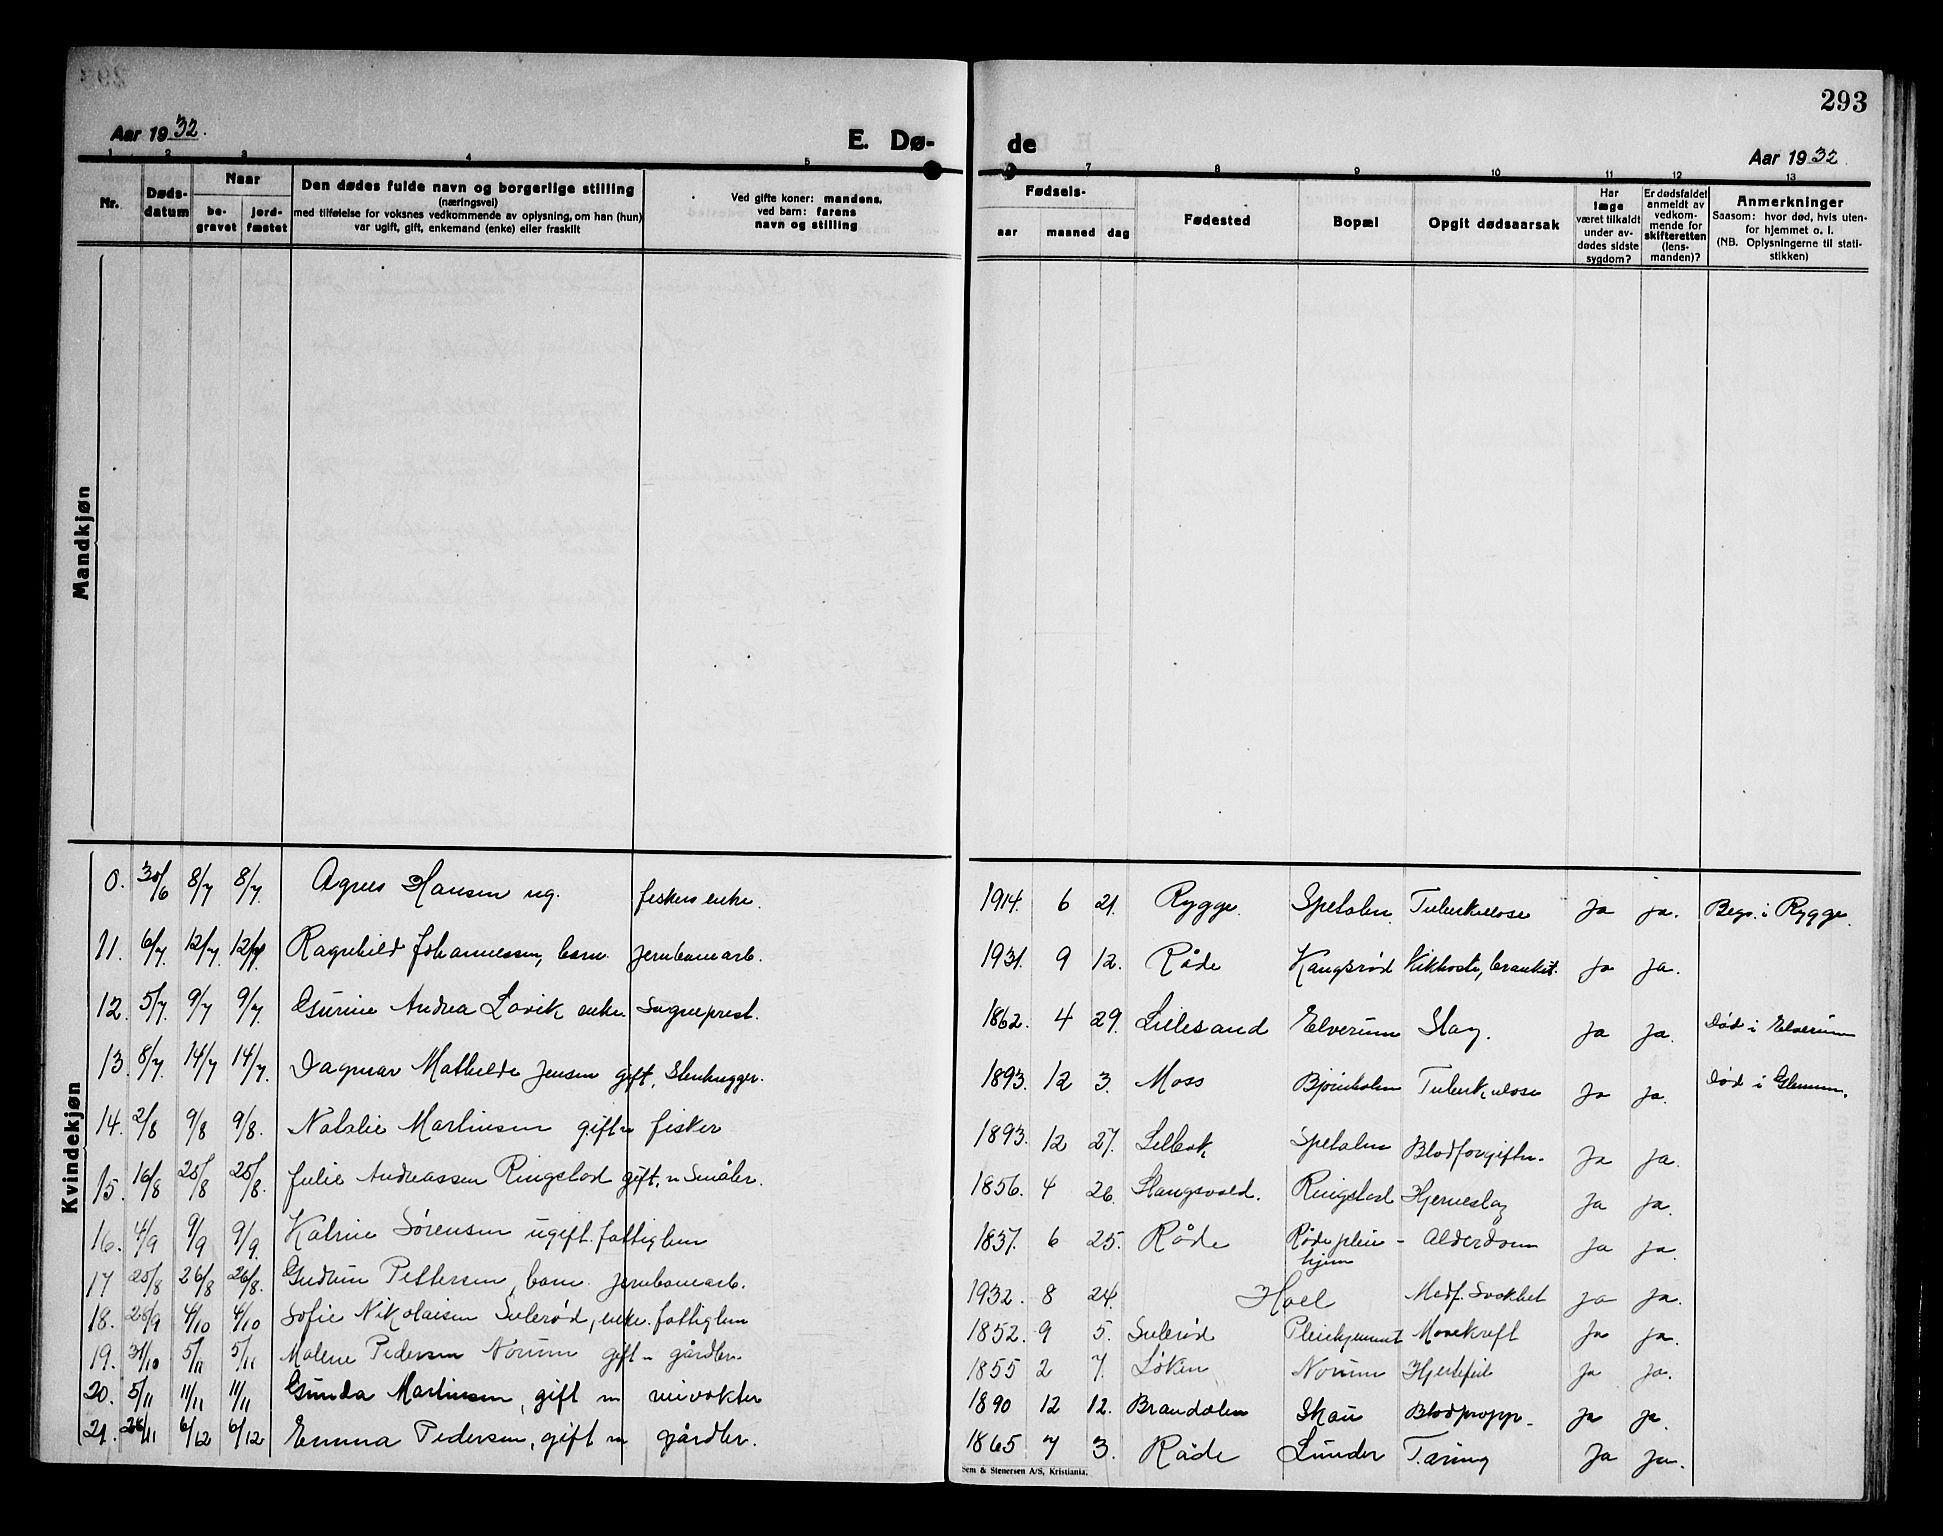 293
Aar 1932. E. Dø- de Aar 1932
1 2 3 4 5 7 8 9 10 11 12 13
Nr.
Døds-
datum
Naar
be-
gravet
jord-
fæstet
Den dødes fulde navn og borgerlige stilling
(næringsvei)
med tilføielse for voksnes vedkommende av oplysning, om han (hun)
var ugift, gift, enkemand (enke) eller fraskilt
Ved gifte koner: mandens,
ved barn: farens
navn og stilling
Fødsels-
aar maaned dag
Fødested
Bopæl
Opgit dødsaarsak
Har
læge
været tilkaldt
under av-
dødes sidste
sygdom?
Er dødsfaldet
anmeldt av
vedkom-
mende for
skifteretten
(lens-
manden)?
Anmerkninger
Saasom: hvor død, hvis uten-
for hjemmet o. l.
(NB. Oplysningerne til stati-
stikken)
Mandkjøn
Kvindekjøn
0. 30/6 8/7 8/7. Agnes Hansen ug. fiskers enke. 1914. 6 21. Rygge. Spetalen Tuberkulose Ja ja. Begr. i Rygge.
11. 6/7 12/7. 12/7. Ragnhild Johannessen, barn. jernbanearb. 1931. 9 12. Råde Kangsrød Kikhoste, brankit. Ja Ja.
12. 5/7 9/7 9/7. Gurine Andrea Lavik enke Sogneprest. 1862. 4 29. Lillesand Elverum Slag. Ja Ja. Død i Elverum
13. 8/7. 14/7 14/7. Dagmar Mathilde Jensen gift, Stenhugger. 1893. 12 3. Moss Bjørnholen Tuberkulose Ja Ja. Død i Glemmen.
14. 2/8 9/8 9/8. Natalie Martinsen gift m fisker 1893. 12 27. Spetalen Blodforgiftn. Ja Ja.
15. 16/8 25/8 25/8. Julie Andreassen Ringstad gift, m Småbr. 1856. 4 26. Slangsvold. Ringstad Hjerneslag Ja Ja.
16. 4/9 9/9 9/9. Katrine Sørensen ugift. fattiglem 1837. 6 25. Råde Råde pleie- Alderdom Ja Ja.
hjem
17 25/8 26/8 26/8. Gudrun Pettersen, barn. jernbanearb. 1932. 8 24. Hael Medf. Svakhet Ja Ja.
18. 28/9 4/10 4/10 Sofie Nikolaisen Sulerød, enke. fattiglem 1852. 9 5. Sulerød Pleiehjemmet Mavekreft Ja Ja.
19. 31/10 5/11 5/11 Malene Pedersen Norum gift m gårdbr. 1855 2 7. Løken Norum Hjertefeil Ja Ja.
20. 5/11 11/11 11/11 Gunda Martinsen, gift m veivokter 1890 12 12. Brandalen Skau Blodpropp. Ja Ja.
21. 28/11 6/12 6/12 Emma Pedersen, gift m gårdbr. 1865 7 3. Råde Lunder Tæring Ja Ja.
Sem & Stenersen A/S, Kristiania.